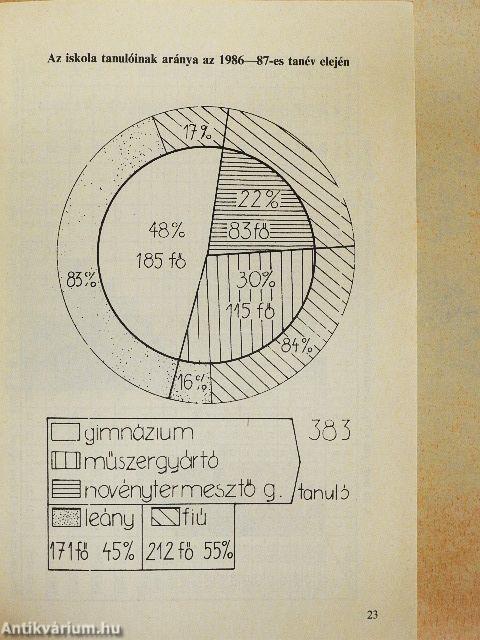 Az iskola tanulóinak aránya az 1986—87-es tanév elején
17%
22%
83 fő
48%
185 fő
83%
30%
115 fő
84%
16%
gimnázium
383
műszergyártó
növénytermesztő g.
tanuló
leány
fiú
171 fő 45%
212 fő 55%
23
Antikvárium.hu